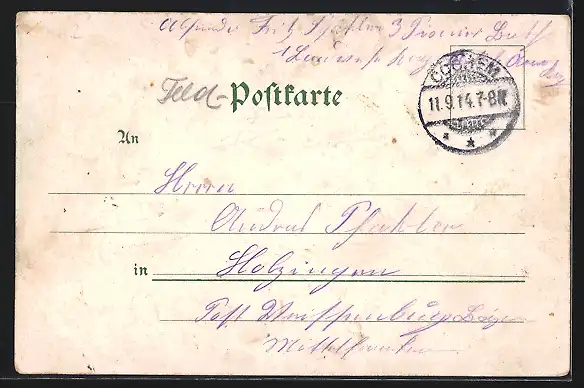 Absender Fritz Pfahler 3 Pionier Batl
Feld-Postkarte
COCHEM
11.9.14.7-8N
An
Herrn
Andreas Pfahler
in Holzingen
Post Weissenburg Bayern
Mittelfranken